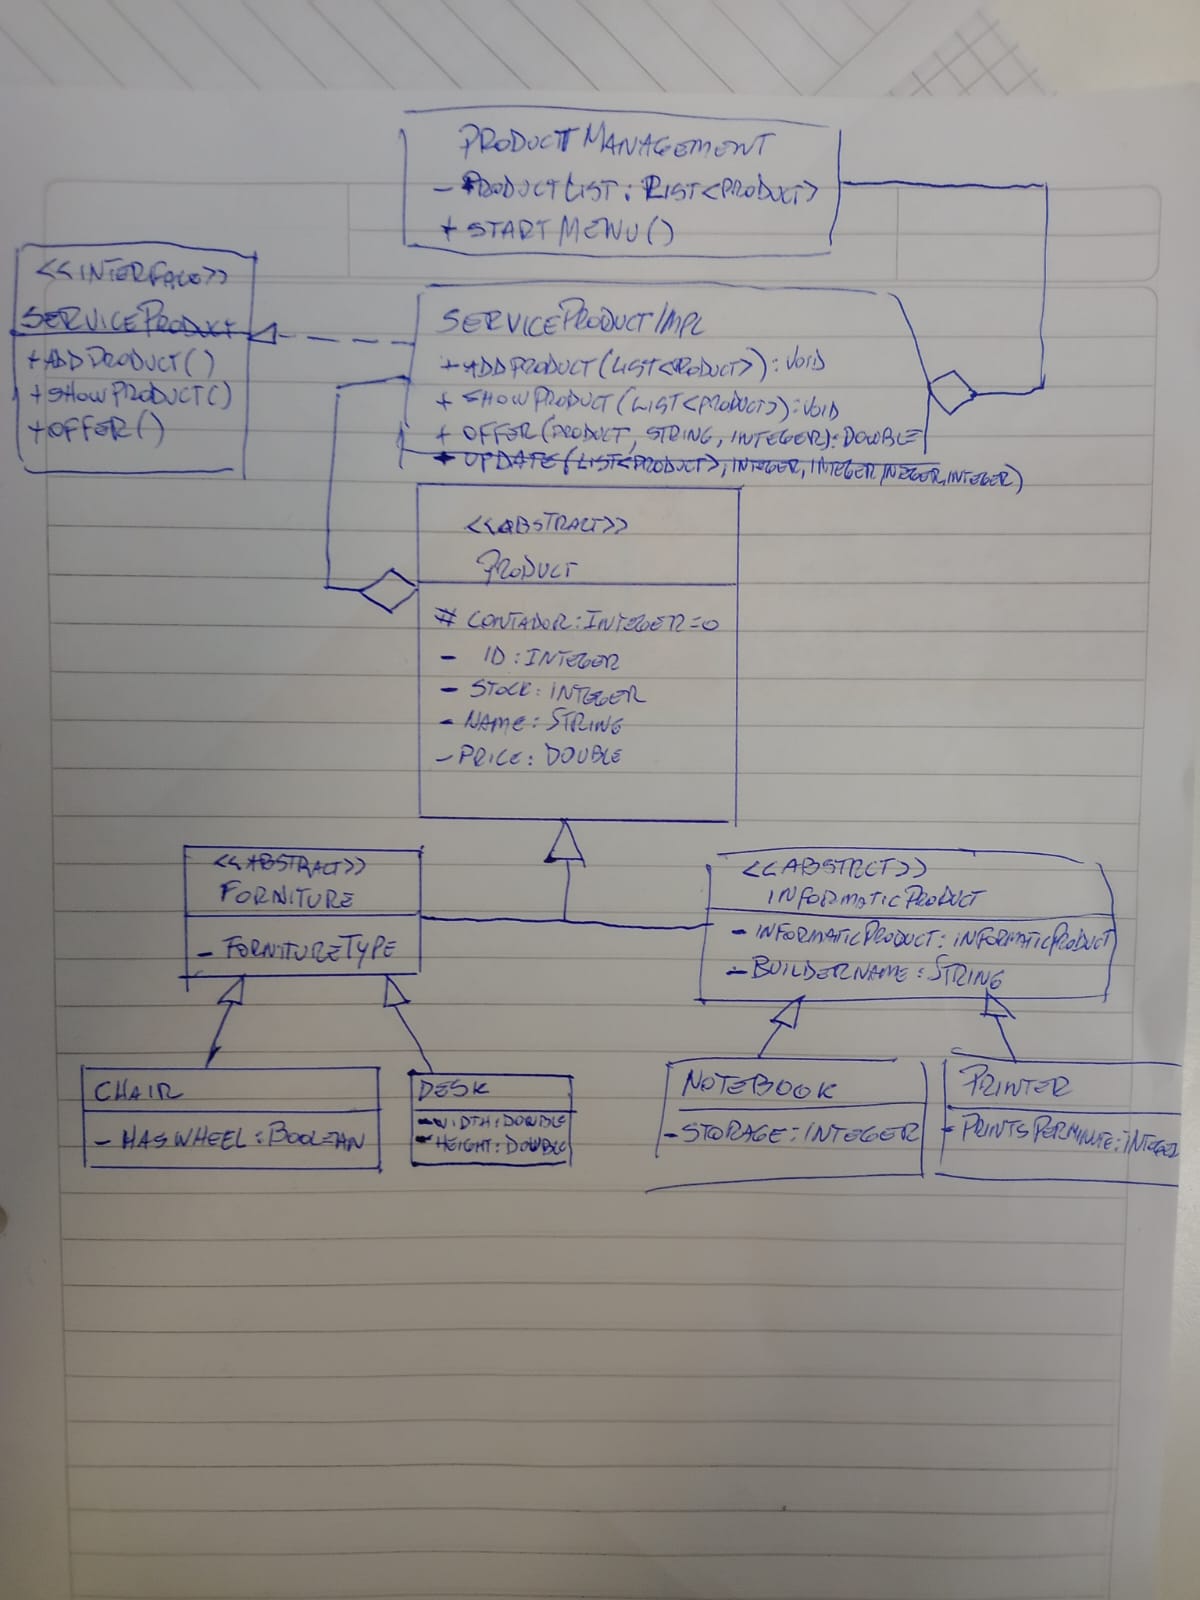 PRODUCT MANAGEMENT
- PRODUCTLIST: LIST<PRODUCT>
+ START MENU()
<<INTERFACE>>
SERVICEPRODUCT
+ADDPRODUCT()
+SHOWPRODUCT()
+OFFER()
SERVICEPRODUCTIMPL
+ADDPRODUCT(LIST<PRODUCT>): VOID
+ SHOWPRODUCT(LIST<PRODUCT>): VOID
+ OFFER(PRODUCT, STRING, INTEGER): DOUBLE
+ UPDATE(LIST<PRODUCT>, INTEGER, INTEGER, INTEGER, INTEGER)
<<ABSTRACT>>
PRODUCT
# CONTADOR: INTEGER=0
- ID: INTEGER
- STOCK: INTEGER
- NAME: STRING
- PRICE: DOUBLE
<<ABSTRACT>>
FORNITURE
- FORNITURETYPE
<<ABSTRCT>>
INFORMATICPRODUCT
- INFORMATICPRODUCT: INFORMATICPRODUCT
- BUILDERNAME: STRING
CHAIR
- HASWHEEL: BOOLEAN
DESK
- WIDTH: DOUBLE
- HEIGHT: DOUBLE
NOTEBOOK
- STORAGE: INTEGER
PRINTER
- PRINTSPERMINUTE: INTEGER